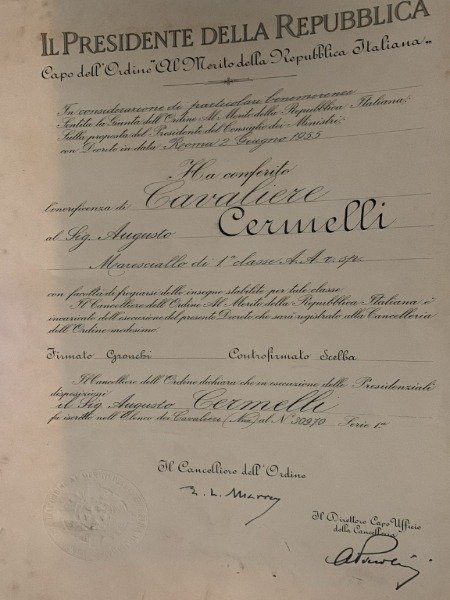 IL PRESIDENTE DELLA REPUBBLICA
Capo dell'Ordine "Al Merito della Repubblica Italiana"
In considerazione di particolari benemerenze
Sentita la Giunta dell'Ordine Al Merito della Repubblica Italiana;
Sulla proposta del Presidente del Consiglio dei Ministri;
con Decreto in data Roma 2 Giugno 1955
Ha conferito
l'onorificenza di Cavaliere
al Sig. Augusto Cermelli
Maresciallo di 1ª classe A.A.r.sp.
con facoltà di fregiarsi delle insegne stabilite per tale classe
Il Cancelliere dell'Ordine Al Merito della Repubblica Italiana è
incaricato dell'esecuzione del presente Decreto che sarà registrato alla Cancelleria
dell'Ordine medesimo.
Firmato Gronchi Controfirmato Scelba
Il Cancelliere dell'Ordine dichiara che in esecuzione delle Presidenziali
disposizioni
il Sig. Augusto Cermelli
fu iscritto nell'Elenco dei Cavalieri (Naz) al N° 30970 Serie 1ª
Il Cancelliere dell'Ordine
Il Direttore Capo Ufficio
della Cancelleria